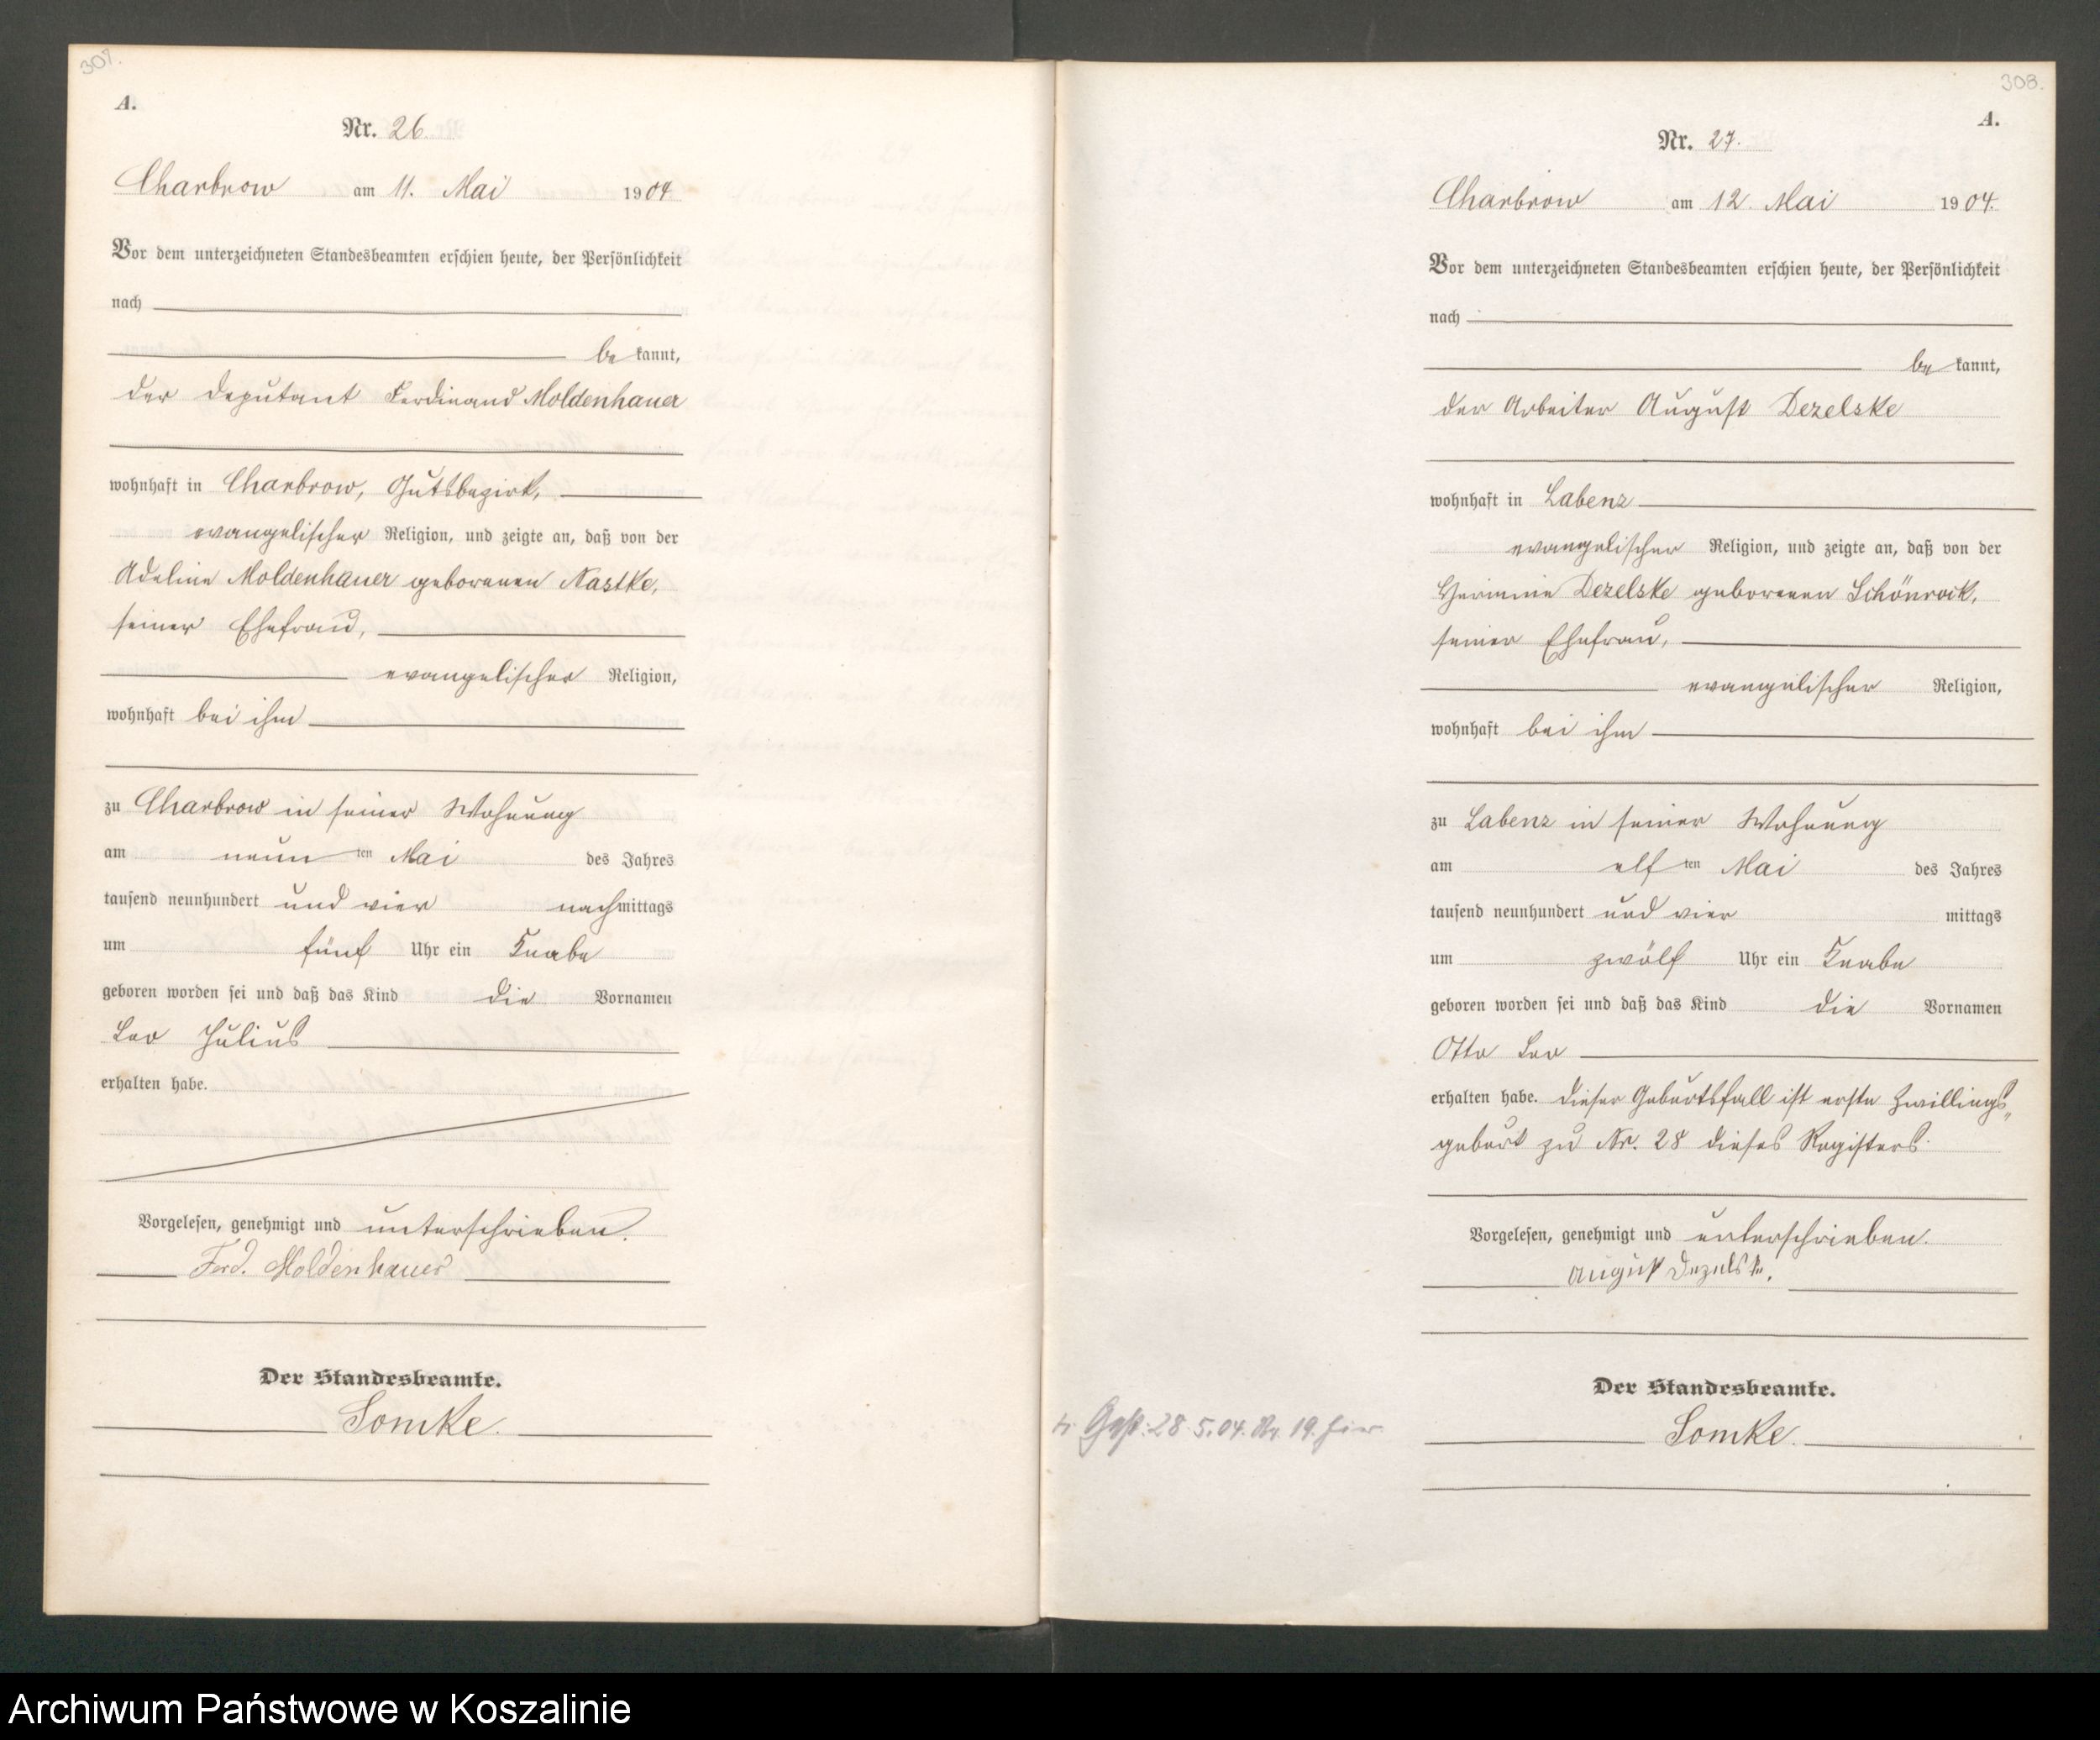 307.
A.
Nr. 26.
Charbrow am 11. Mai 1904.
Vor dem unterzeichneten Standesbeamten erschien heute, der Persönlichkeit
nach
be kannt,
der Deputant Ferdinand Moldenhauer
wohnhaft in Charbrow, Gutsbezirk,
evangelischer Religion, und zeigte an, daß von der
Adeline Moldenhauer geborenen Nastke,
seiner Ehefrau,
evangelischer Religion,
wohnhaft bei ihm
zu Charbrow in seiner Wohnung
am neun ten Mai des Jahres
tausend neunhundert und vier nachmittags
um fünf Uhr ein Knabe
geboren worden sei und daß das Kind die Vornamen
Leo Julius
erhalten habe.
Vorgelesen, genehmigt und unterschrieben.
Ferd. Moldenhauer
Der Standesbeamte.
Somke.
308.
A.
Nr. 27.
Charbrow am 12. Mai 1904.
Vor dem unterzeichneten Standesbeamten erschien heute, der Persönlichkeit
nach
be kannt,
der Arbeiter August Dezelske
wohnhaft in Labenz
evangelischer Religion, und zeigte an, daß von der
Hermine Dezelske geborenen Schönrock,
seiner Ehefrau,
evangelischer Religion,
wohnhaft bei ihm
zu Labenz in seiner Wohnung
am elf ten Mai des Jahres
tausend neunhundert und vier mittags
um zwölf Uhr ein Knabe
geboren worden sei und daß das Kind die Vornamen
Otto Leo
erhalten habe. Dieser Geburtsfall ist erste Zwillings„
geburt zu Nr. 28 dieses Registers.
Vorgelesen, genehmigt und unterschrieben.
August Dezelske.
Der Standesbeamte.
Somke.
Gest. 28.5.04. Nr. 19. hier
Archiwum Państwowe w Koszalinie